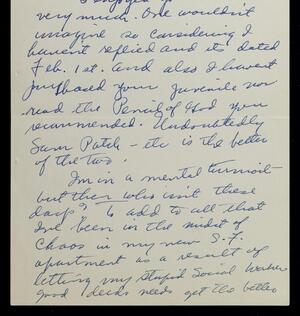 very much. One wouldn't
imagine so considering I
haven't replied and its dated
Feb. 1st. and also I havent
purchased your juvenile nor
read the Pencil of God you
recommended. Undoubtedly
Sam Patch - etc is the better
of the two.
I'm in a mental turmoil
but then who isn't these
days? To add to all that
I've been in the midst of
chaos in my new S.F.
apartment as a result of
letting my stupid Social Worker
good deeds needs get the better